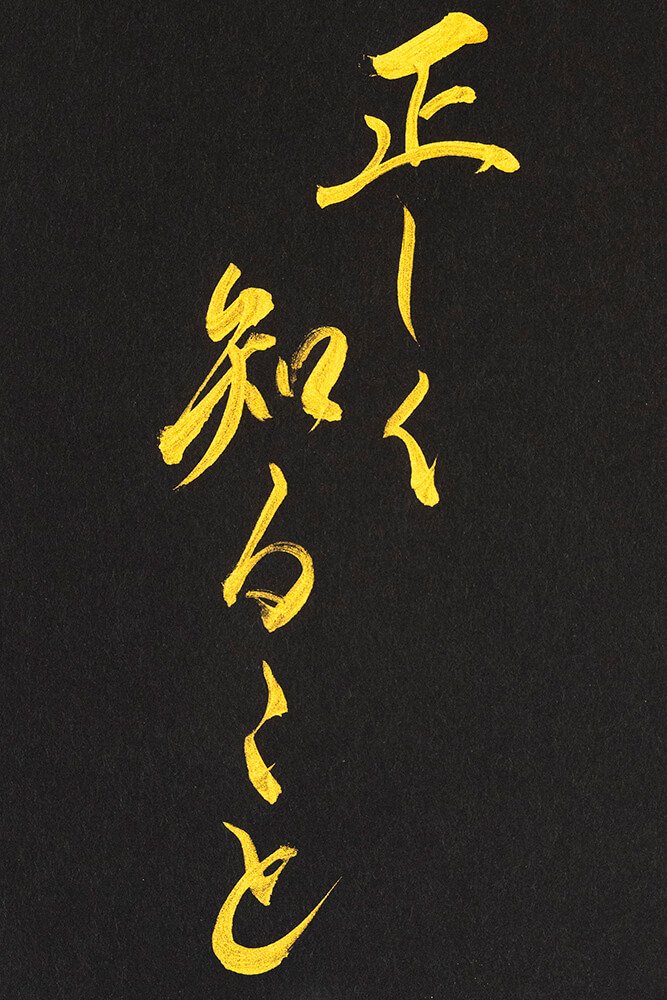 正しく
知ること